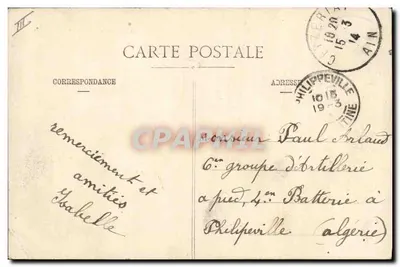 III
CARTE POSTALE
CORRESPONDANCE
ADRESSE
CEYZERIAT
10 20
15 3
14
AIN
PHILIPPEVILLE
10 15
19 - 3
INE
Cartepostale
remerciement et
amitiés
Isabelle
Monsieur Paul Arlaud
6en groupe d'Artillerie
a pied, 4en Batterie à
Philipeville (algérie)